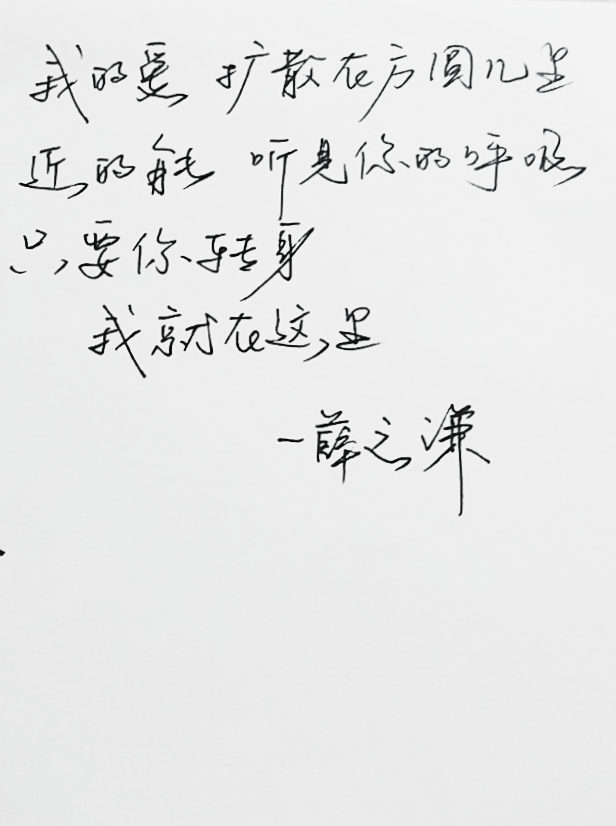 我的爱 扩散在方圆几里
近的能 听见你的呼吸
只要你转身
我就在这里
—薛之谦